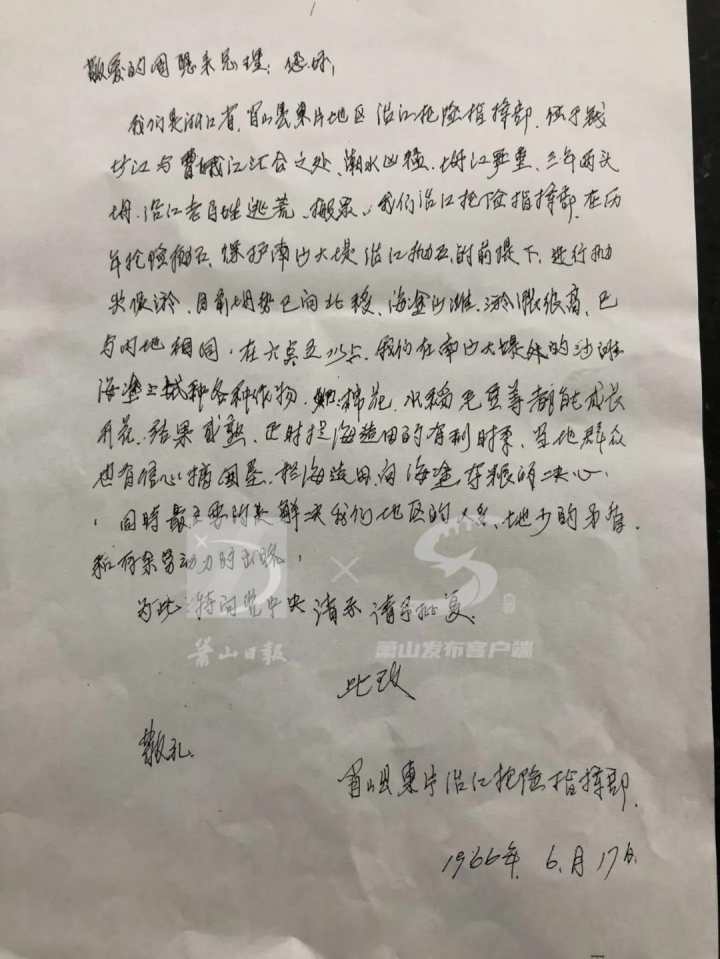 敬爱的周恩来总理：您好，
我们是浙江省，肖山县东片地区沿江抢险指挥部，位于钱
塘江与曹娥江汇合之处、潮水凶猛、坍江严重、三年两头
坍、沿江老百姓逃荒、搬家、我们沿江抢险指挥部、在历
年抢险抛石、保护南沙大堤沿江抛石的前提下、进行抛
头促淤、目前坍势已向北移、海塗沙滩、淤涨很高、已
与内地相同，在六点五以上、我们在南沙大堤外的沙滩
海塗上试种各种作物、棉花、水稻毛豆等都能成长
开花、结果成熟、是时捉海造田的有利时季、当地群众
也有信心搞围垦、拦海造田、向海塗夺粮的决心，
同時最主要的是解决我们地区的人多、地少的矛盾，
和有余劳动力的出路，
为此特向党中央请示请予批复。
萧山日报 × 萧山发布客户端
此致
敬礼
肖山县东片沿江抢险指挥部
1966年6月17日